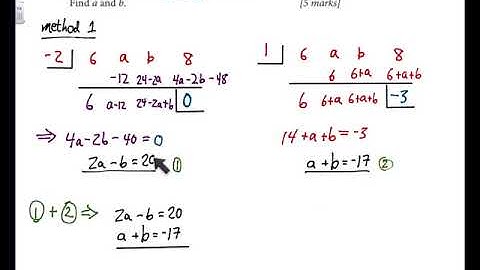 Find a and b.
[5 marks]
method 1
-2 | 6 a b 8
-12 24-2a 4a-2b-48
6 a-12 24-2a+b 0
⇒ 4a-2b-40=0
2a-b=20 ①
1 | 6 a b 8
6 6+a 6+a+b
6 6+a 6+a+b -3
14+a+b=-3
a+b=-17 ②
①+② ⇒ 2a-b=20
a+b=-17